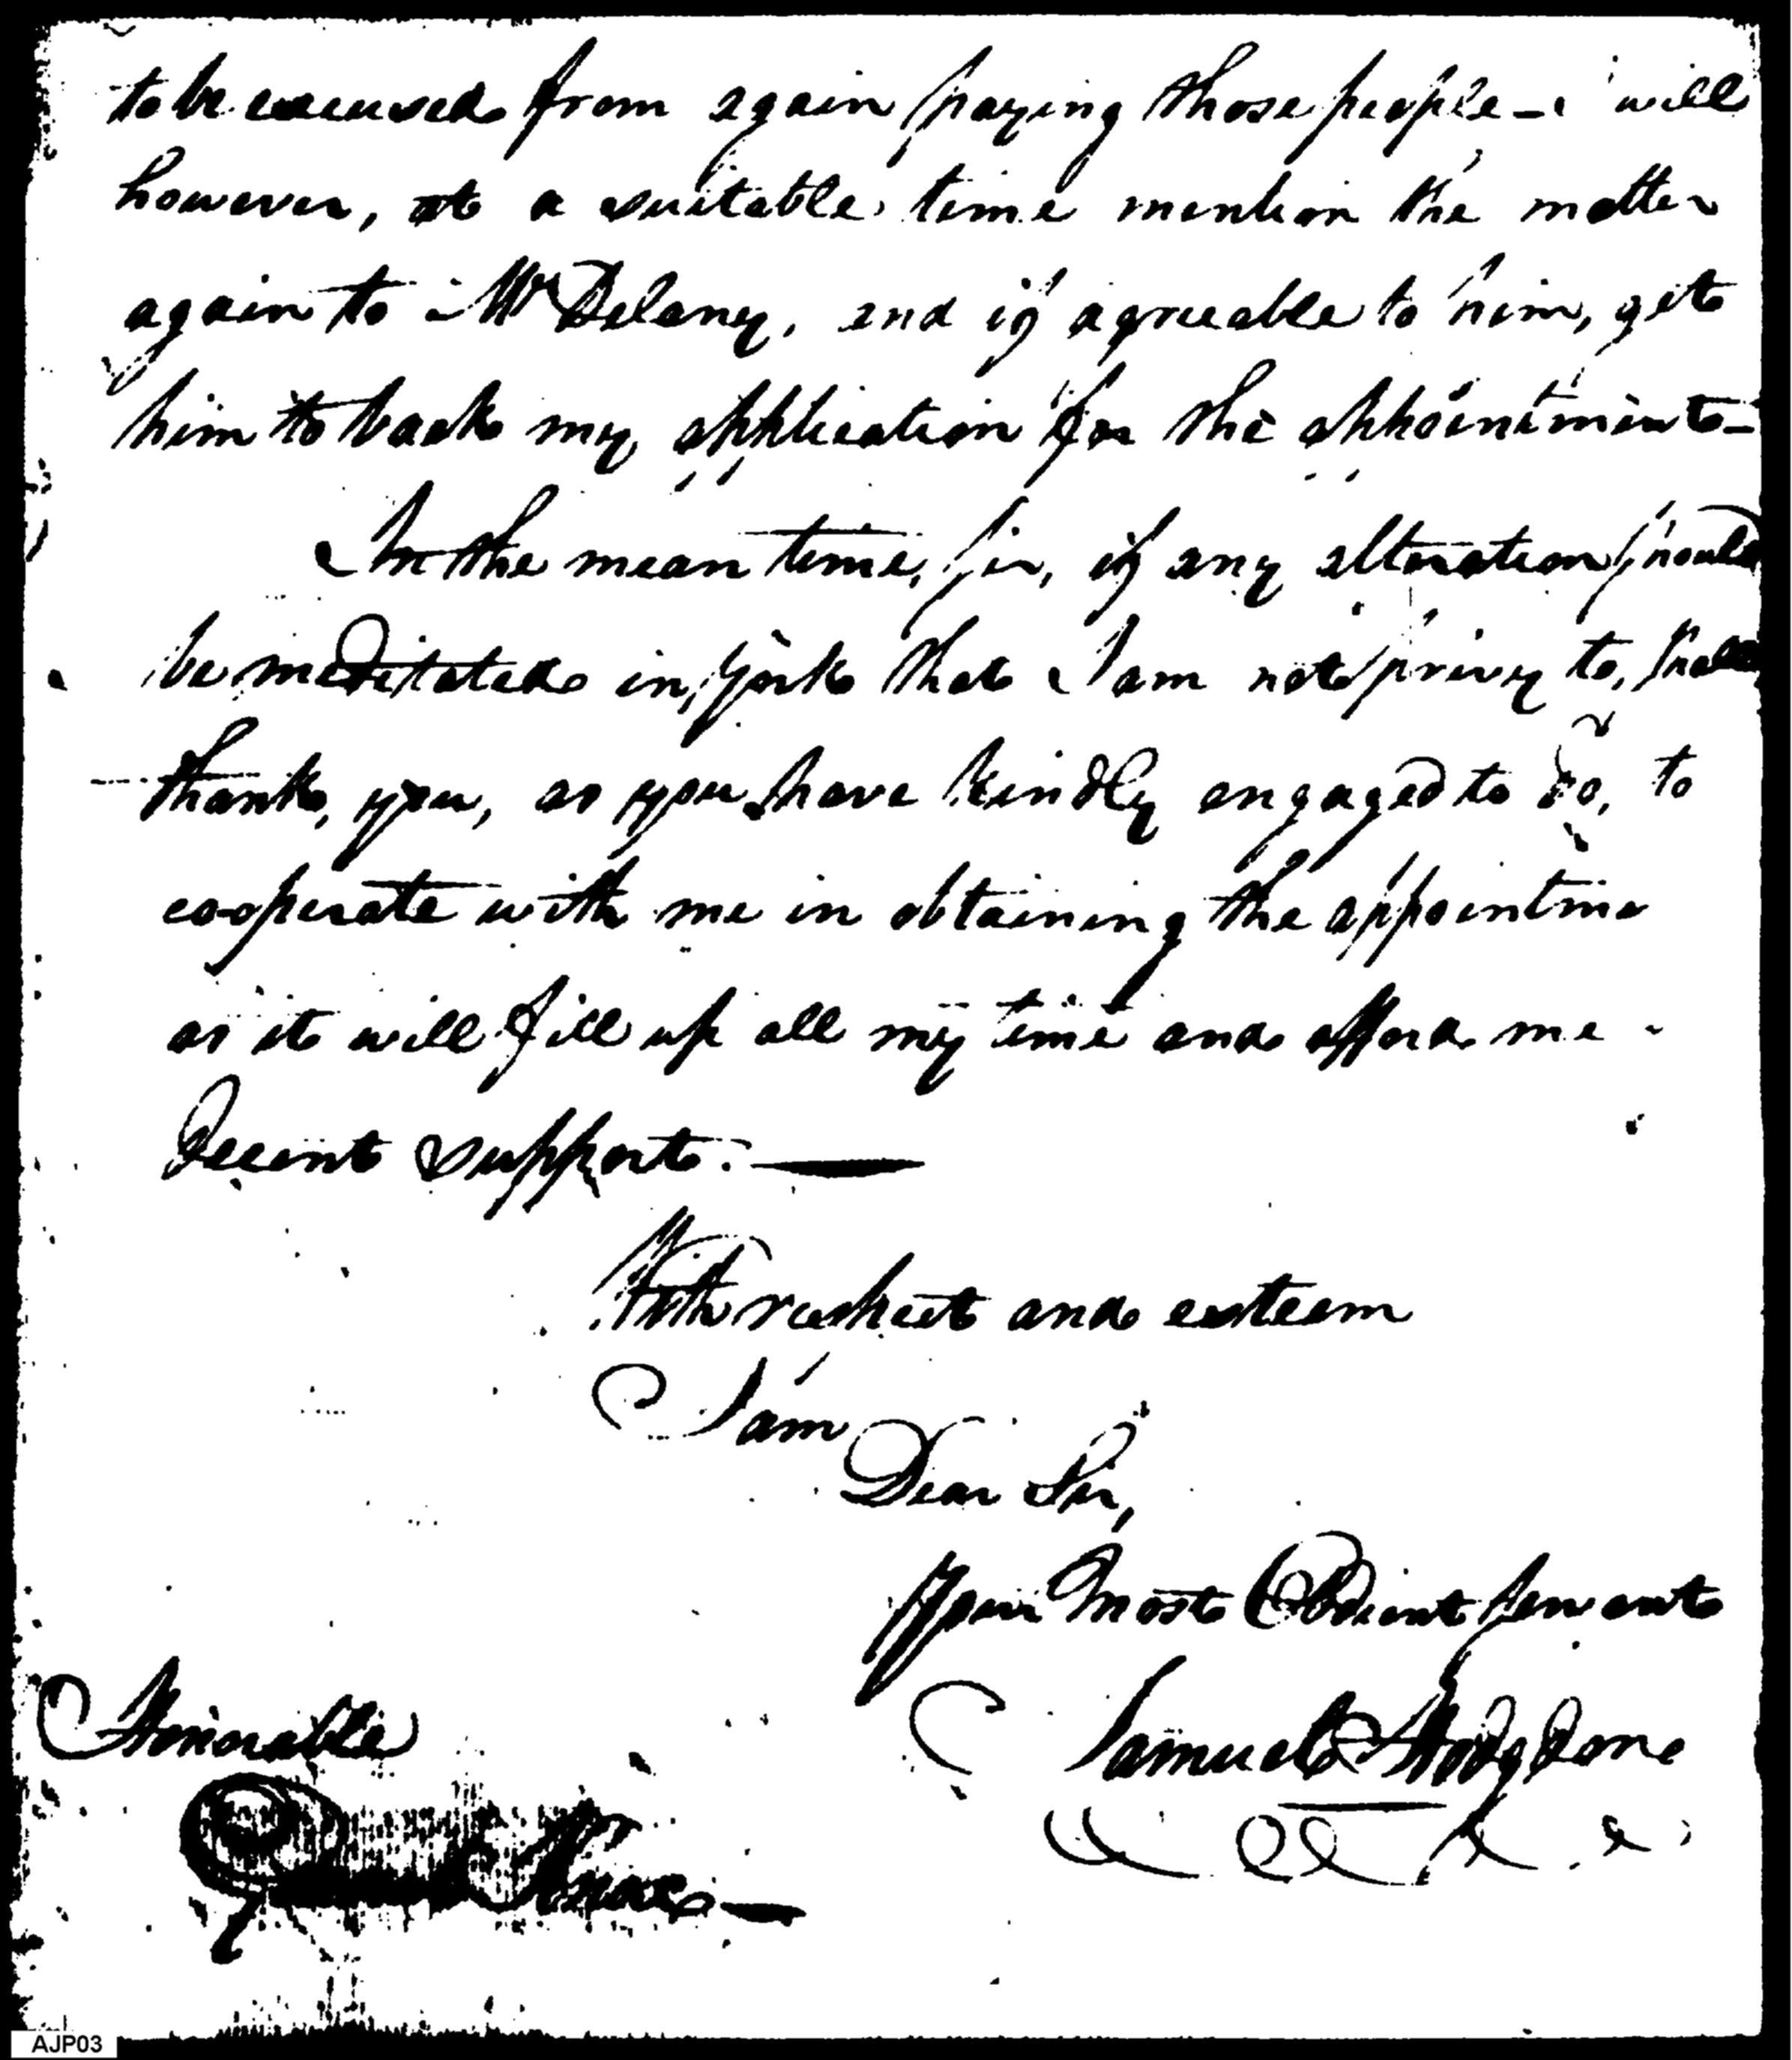 to be excused from again paying those people – I will
however, at a suitable time mention the matter
again to Mr Delany, and if agreeable to him, get
him to back my application for the appointment –
In the mean time, Sir, if any alteration should
be meditated in York that I am not privy to, shall
thank you, as you have kindly engaged to do, to
cooperate with me in obtaining the appointme
as it will fill up all my time and afford me
decent support. —
With respect and esteem
I am
Dear Sir,
Your Most Obedient Servant
Samuel Hodgdon
Honorable
Knox —
AJP03